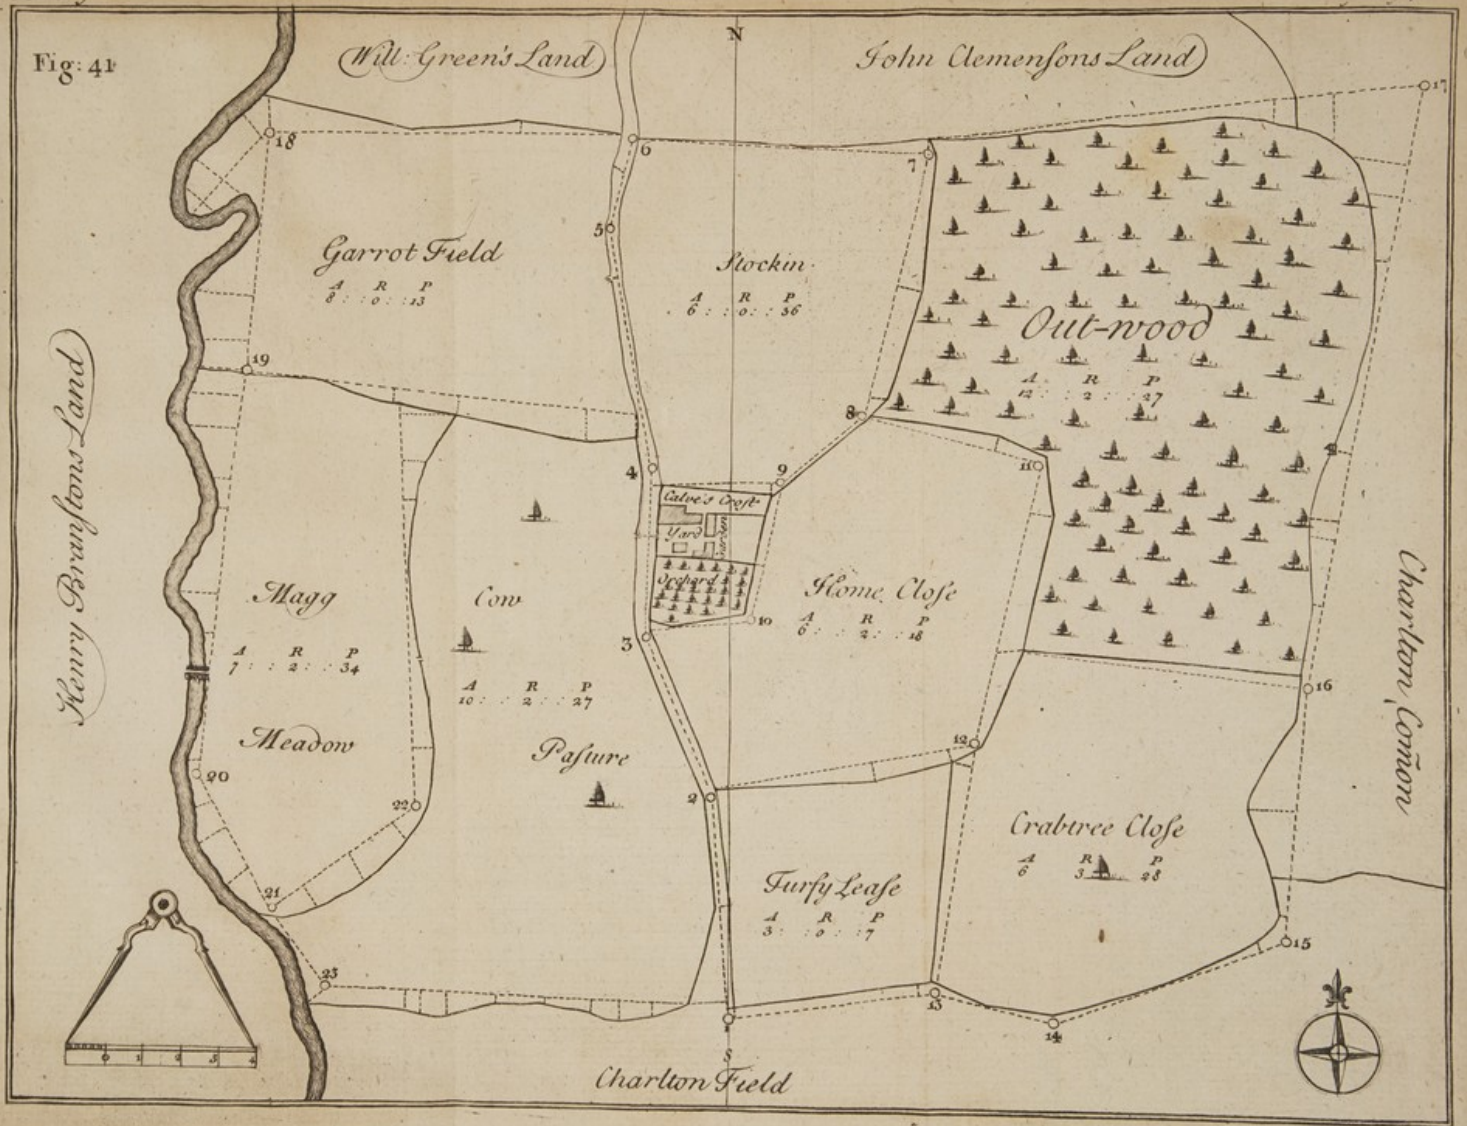 Fig: 41
Will: Green's Land
N
John Clemenſons Land
17
18
6
7
5
Garrot Field
A R P
8 : : 0 : : 13
Stockin
A R P
6 : : 0 : : 36
Out-wood
A R P
12 : : 2 : : 27
19
8
4
9
11
Henry Branſtons Land
Calve's Croft
Yard
Garden
Orchard
10
3
Magg
A R P
7 : : 2 : : 34
Meadow
Cow
A R P
10 : : 2 : : 27
Paſture
Home Cloſe
A R P
6 : : 2 : : 18
16
Charlton Com̄on
12
20
22
2
Crabtree Cloſe
A R P
6 3 28
Furſy Leaſe
A R P
3 : : 0 : : 7
21
15
23
13
1
14
0 1 2 3 4
S
Charlton Field